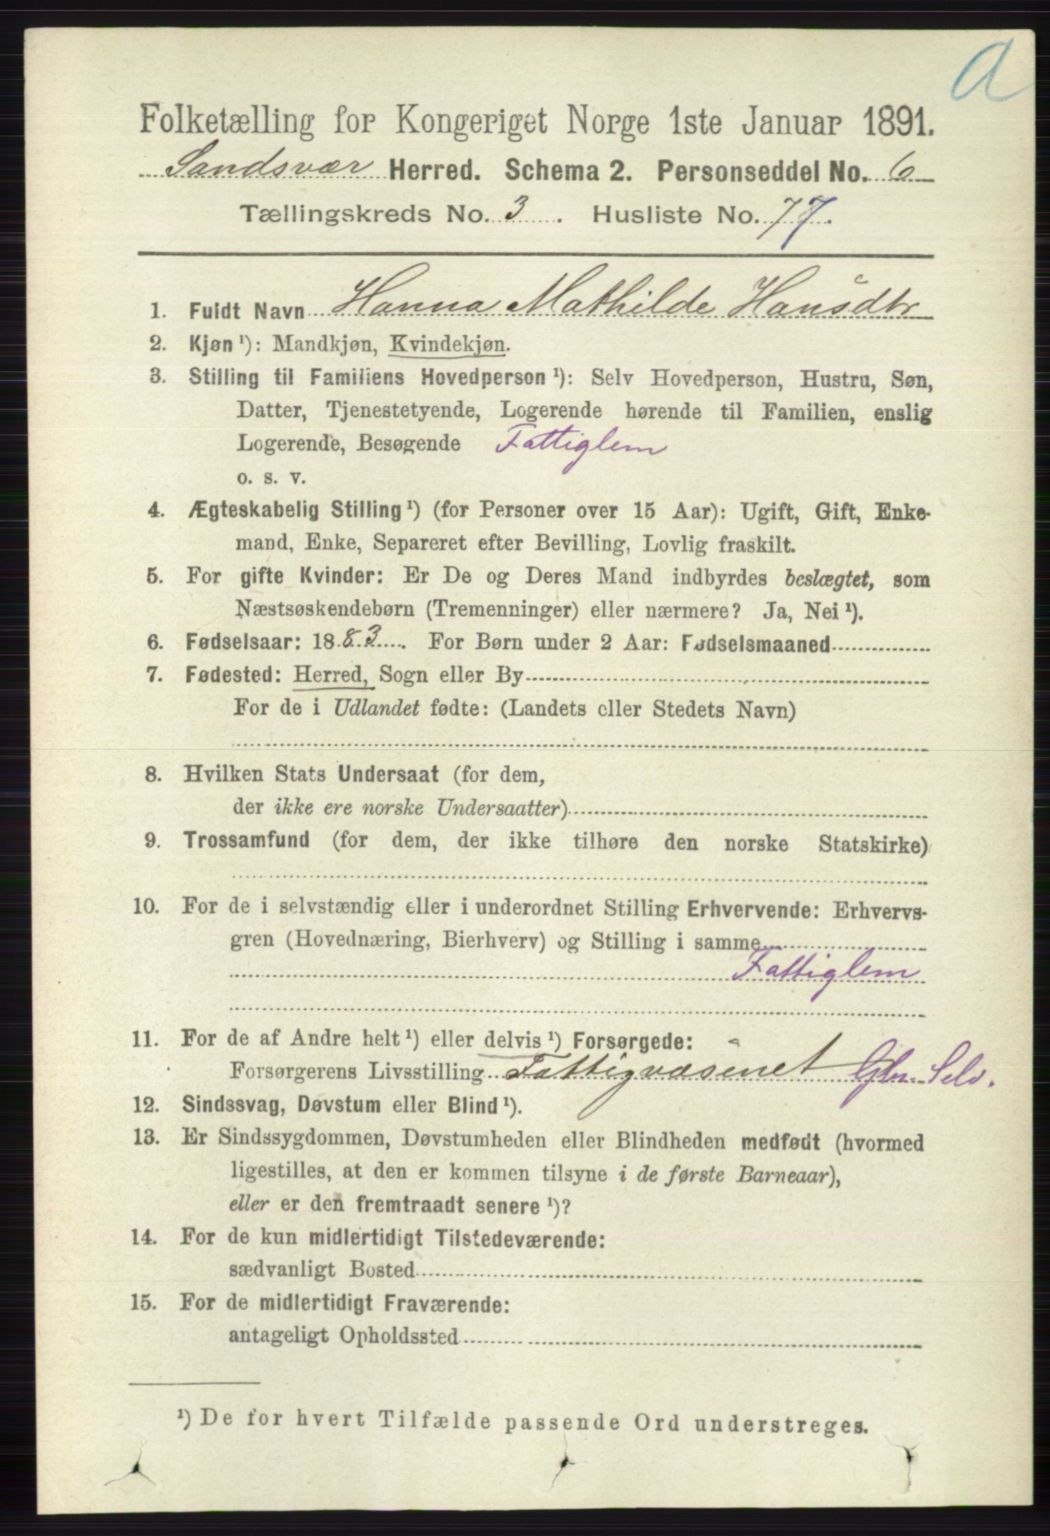 a
Folketælling for Kongeriget Norge 1ste Januar 1891.
Sandsvær Herred. Schema 2. Personseddel No. 6
Tællingskreds No. 3. Husliste No. 77.
1. Fuldt Navn Hanna Mathilde Hansdtr
2. Kjøn ¹): Mandkjøn, Kvindekjøn.
3. Stilling til Familiens Hovedperson ¹): Selv Hovedperson, Hustru, Søn,
Datter, Tjenestetyende, Logerende hørende til Familien, enslig
Logerende, Besøgende Fattiglem
o. s. v.
4. Ægteskabelig Stilling ¹) (for Personer over 15 Aar): Ugift, Gift, Enke-
mand, Enke, Separeret efter Bevilling, Lovlig fraskilt.
5. For gifte Kvinder: Er De og Deres Mand indbyrdes beslægtet, som
Næstsøskendebørn (Tremenninger) eller nærmere? Ja, Nei ¹).
6. Fødselsaar: 1883. For Børn under 2 Aar: Fødselsmaaned
7. Fødested: Herred, Sogn eller By
For de i Udlandet fødte: (Landets eller Stedets Navn)
8. Hvilken Stats Undersaat (for dem,
der ikke ere norske Undersaatter)
9. Trossamfund (for dem, der ikke tilhøre den norske Statskirke)
10. For de i selvstændig eller i underordnet Stilling Erhvervende: Erhvervs-
gren (Hovednæring, Bierhverv) og Stilling i samme
Fattiglem
11. For de af Andre helt ¹) eller delvis ¹) Forsørgede:
Forsørgerens Livsstilling Fattigvæsenet
12. Sindssvag, Døvstum eller Blind ¹).
13. Er Sindssygdommen, Døvstumheden eller Blindheden medfødt (hvormed
ligestilles, at den er kommen tilsyne i de første Barneaar),
eller er den fremtraadt senere ¹)?
14. For de kun midlertidigt Tilstedeværende:
sædvanligt Bosted
15. For de midlertidigt Fraværende:
antageligt Opholdssted
¹) De for hvert Tilfælde passende Ord understreges.